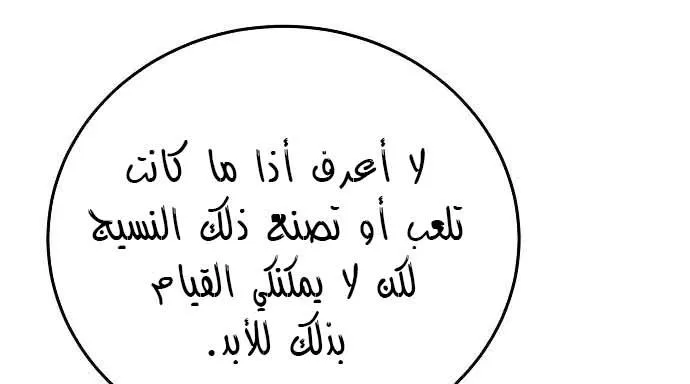 لا أعرف أذا ما كانت
تلعب أو تصنع ذلك النسيج
لكن لا يمكنكي القيام
بذلك للأبد.